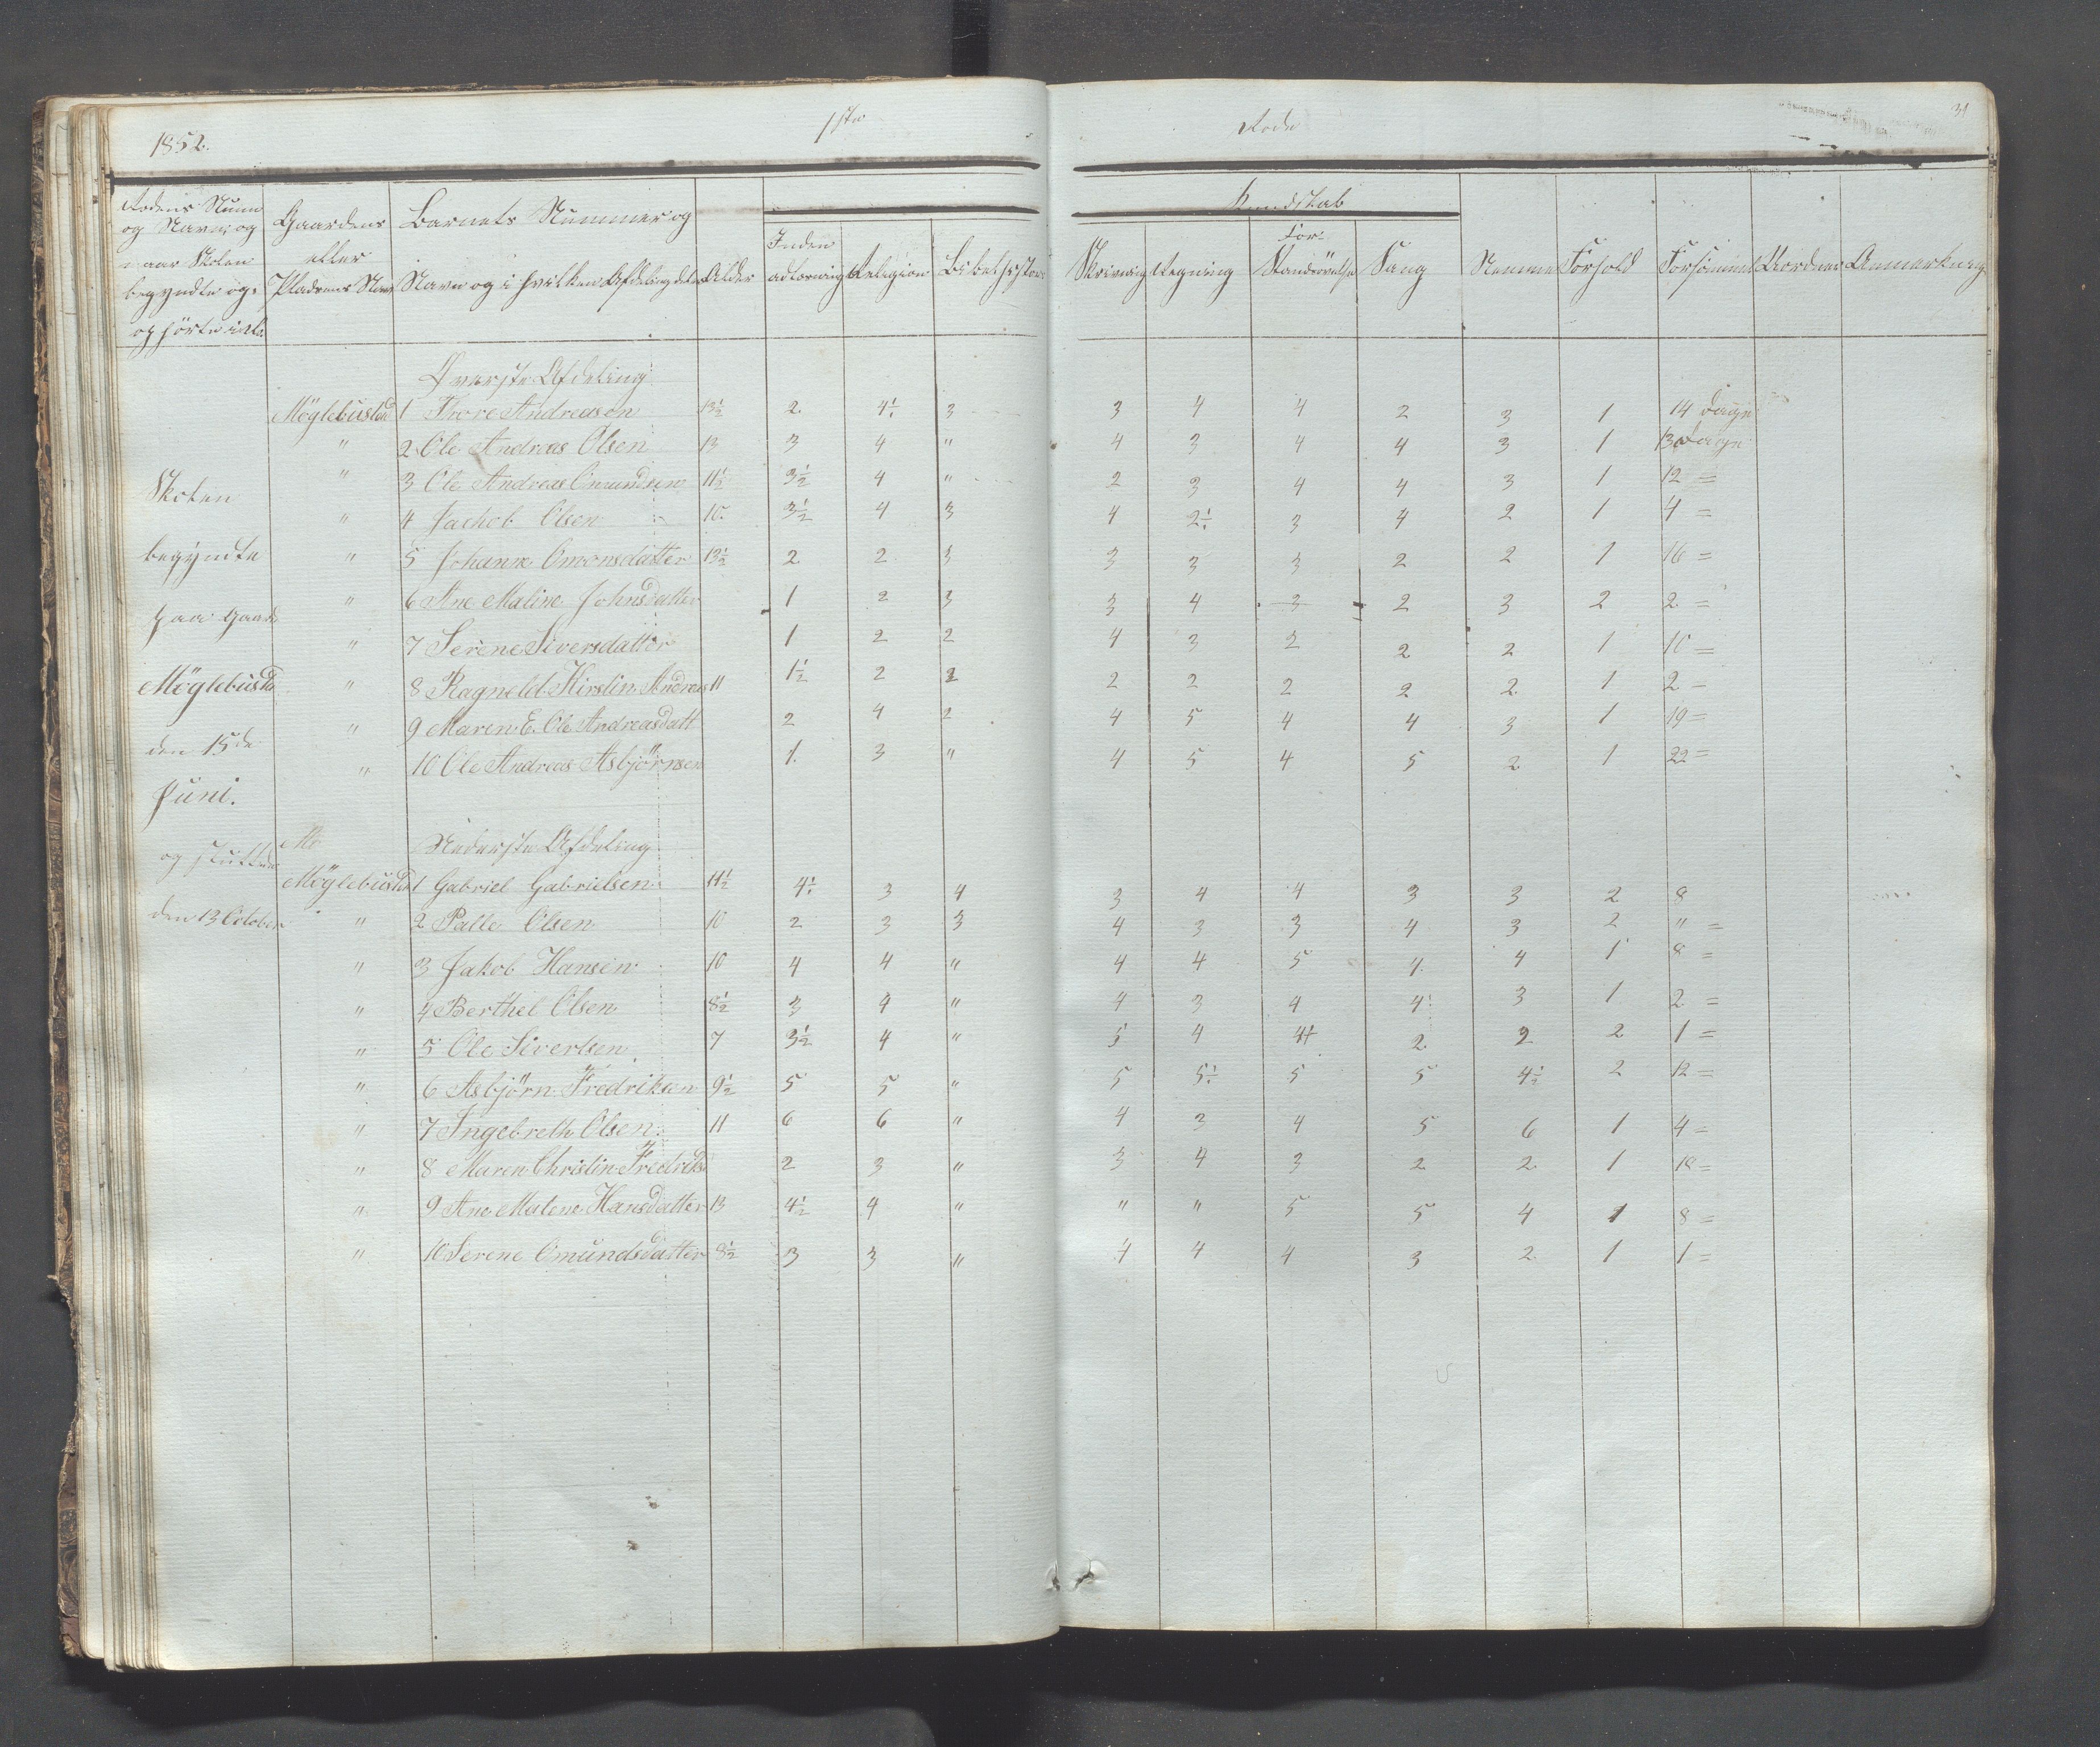 1852.
1ste
Rode
31
Rodens Num
og Navn og
naar Skolen
begyndte og
ophörte i den
Gaardens
eller
Pladsens Navn
Barnets Nummer og
Navn og i hvilken Afdeling det er
Alder
Inden
adlæsning
Religion
Bibelhistorie
Kundskab
Skrivning
Regning
For-
standsøvelse
Sang
Nemme
Forhold
Forsömmelse
Anmerkning
Øverste Afdeling
Möglebustad 1 Thore Andreasen 13½ 2. 4½ 3 3 4 4 2 3 1 14 Dage
" 2 Ole Andreas Olsen 13 3 4 " 4 3 4 4 3 1 13 Dage
" 3 Ole Andreas Omundsen 11½ 3½ 4 " 2 3 4 4 3 1 12 =
Skolen
" 4 Jachob Olsen 10. 3½ 4 3 4 2½ 3 4 2 1 4 =
begyndte " 5 Johanne Omonsdatter 13½ 2. 2 3 3 3 3 2 2 1 16 =
" 6 Ane Maline Johnsdatter 1 2 3 3 4 3 2 3 2 2 =
paa Gaard
" 7 Serene Siversdatter 1 2 2 4 3 2 2 2 1 10 =
Möglebustd " 8 Ragneld Kirstin Andreas 11 1½ 2 2 2 2 2 2 2 1 2 =
" 9 Maren E. Ole Andreasdatt 2 4 2 4 5 4 4 3 1 19 =
den 15de
" 10 Ole Andreas Asbjörnsen 1. 3 " 4 5 4 5 2 1 22 =
Juni.
og sluttede
Mö
Nederste Afdeling
Möglebustad 1 Gabriel Gabrielsen 11½ 4½ 3 4 3 4 4 3 3 2 8
den 13 October " 2 Palle Olsen 10 2 3 3 4 3 3 4 3 2 " =
" 3 Jakob Hansen 10 4 4 " 4 4 5 4. 4 1 8 =
" 4 Berthel Olsen 8½ 3 4 " 4 3 4 4 3 1 2 =
" 5 Ole Sivertsen 7 3½ 4 " 5 4 4+ 2. 2 2 1 =
" 6 Asbjörn Fredriksen 9½ 5 5 " 5 5½ 5 5 4½ 2 12 =
" 7 Ingebreth Olsen 11 6 6 " 4 3 4 5 6 1 4 =
" 8 Maren Christin Fredriks 2 3 " 3 4 3 2 2. 1 18 =
" 9 Ane Malene Hansdatter 13 4½ 4 " " " 5 5 4 1 8 =
" 10 Serene Omundsdatter 8½ 3 3 " 4 4 4 3 2. 1 1 =